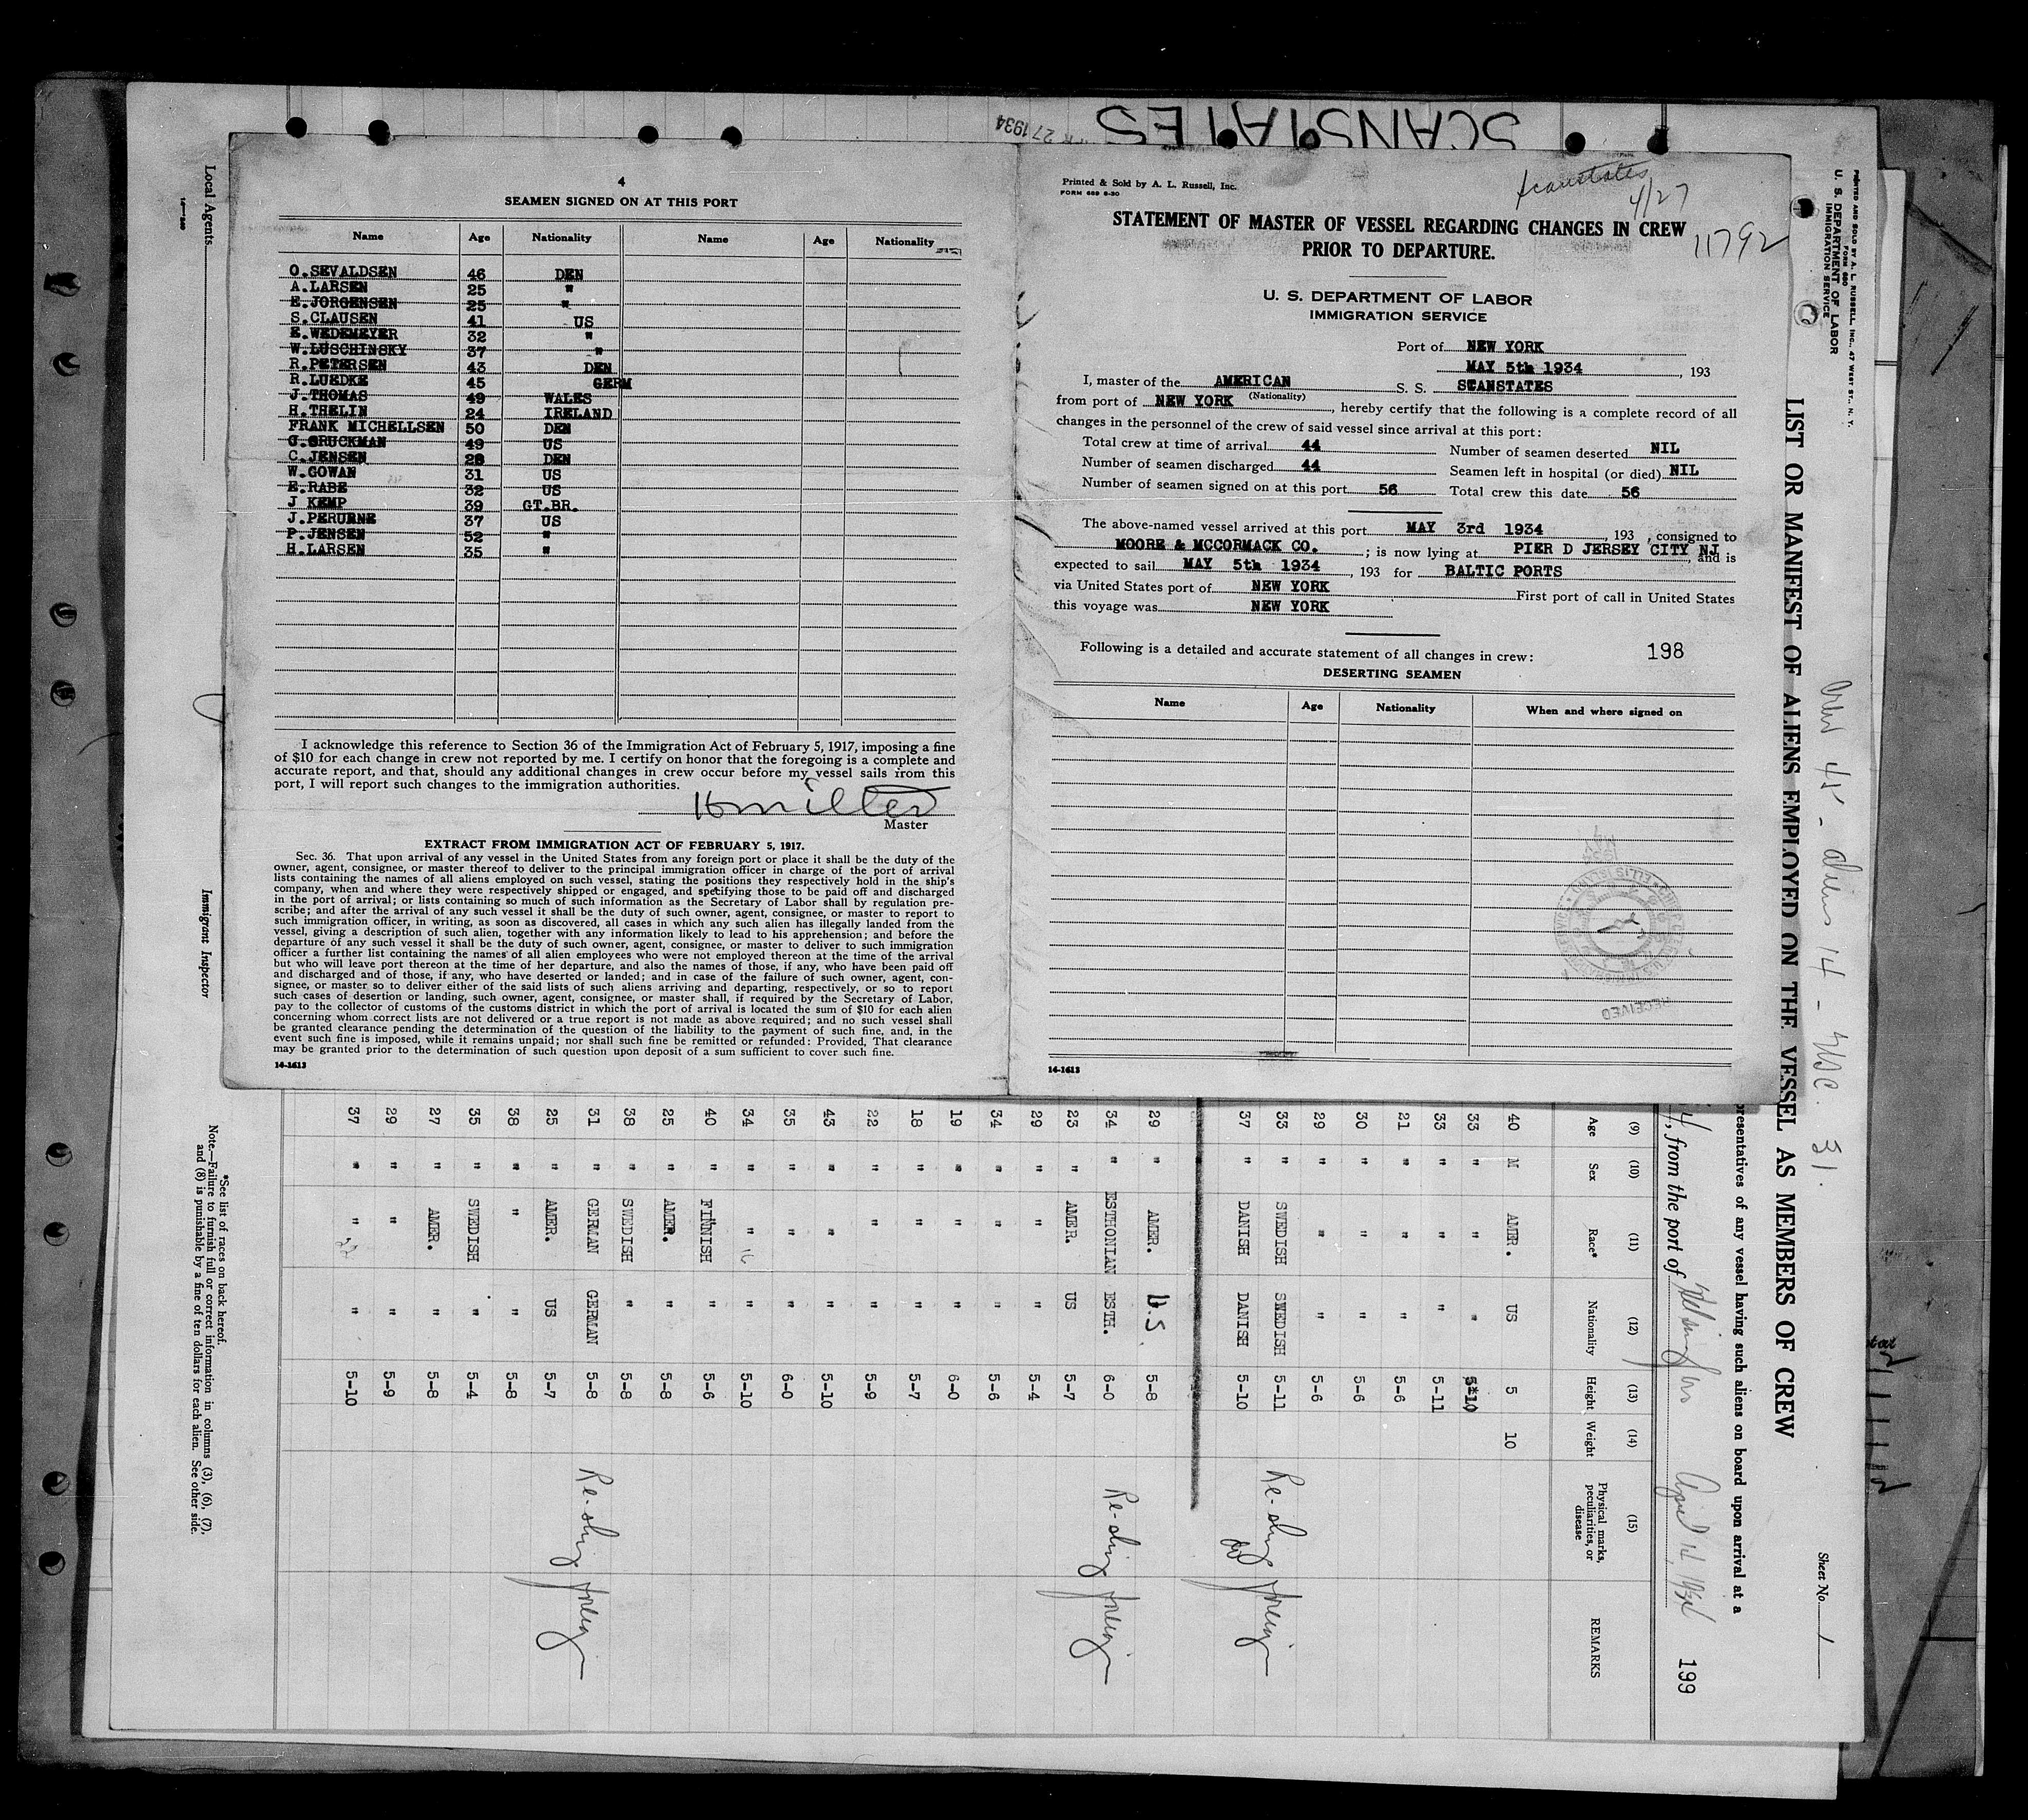 SCANSTATES
27 1934
4
SEAMEN SIGNED ON AT THIS PORT
Name Age Nationality Name Age Nationality
O.SEVALDSEN 46 DEN
A.LARSEN 25 "
E.JORGENSEN 25 "
S.CLAUSEN 41 US
E.WEDEMEYER 32 "
W.LUSCHINSKY 37 "
R.PETERSEN 43 DEN
R.LUEDKE 45 GERM
J.THOMAS 49 WALES
H.THELIN 24 IRELAND
FRANK MICHELLSEN 50 DEN
49 US
C.JENSEN 28 DEN
W.GOWAN 31 US
E.RABE 32 US
J KEMP 39 GT.BR.
J.PERURNE 37 US
P.JENSEN 52 "
H.LARSEN 35 "
I acknowledge this reference to Section 36 of the Immigration Act of February 5, 1917, imposing a fine
of $10 for each change in crew not reported by me. I certify on honor that the foregoing is a complete and
accurate report, and that, should any additional changes in crew occur before my vessel sails from this
port, I will report such changes to the immigration authorities.
Master
EXTRACT FROM IMMIGRATION ACT OF FEBRUARY 5, 1917.
Sec. 36. That upon arrival of any vessel in the United States from any foreign port or place it shall be the duty of the
owner, agent, consignee, or master thereof to deliver to the principal immigration officer in charge of the port of arrival
lists containing the names of all aliens employed on such vessel, stating the positions they respectively hold in the ship's
company, when and where they were respectively shipped or engaged, and specifying those to be paid off and discharged
in the port of arrival; or lists containing so much of such information as the Secretary of Labor shall by regulation pre-
scribe; and after the arrival of any such vessel it shall be the duty of such owner, agent, consignee, or master to report to
such immigration officer, in writing, as soon as discovered, all cases in which any such alien has illegally landed from the
vessel, giving a description of such alien, together with any information likely to lead to his apprehension; and before the
departure of any such vessel it shall be the duty of such owner, agent, consignee, or master to deliver to such immigration
officer a further list containing the names of all alien employees who were not employed thereon at the time of the arrival
but who will leave port thereon at the time of her departure, and also the names of those, if any, who have been paid off
and discharged and of those, if any, who have deserted or landed; and in case of the failure of such owner, agent, con-
signee, or master so to deliver either of the said lists of such aliens arriving and departing, respectively, or so to report
such cases of desertion or landing, such owner, agent, consignee, or master shall, if required by the Secretary of Labor,
pay to the collector of customs of the customs district in which the port of arrival is located the sum of $10 for each alien
concerning whom correct lists are not delivered or a true report is not made as above required; and no such vessel shall
be granted clearance pending the determination of the question of the liability to the payment of such fine, and, in the
event such fine is imposed, while it remains unpaid; nor shall such fine be remitted or refunded: Provided, That clearance
may be granted prior to the determination of such question upon deposit of a sum sufficient to cover such fine.
14-1613
Printed & Sold by A. L. Russell, Inc.
FORM 689 6-30
Scanstates
4/27
11792
STATEMENT OF MASTER OF VESSEL REGARDING CHANGES IN CREW
PRIOR TO DEPARTURE.
U. S. DEPARTMENT OF LABOR
IMMIGRATION SERVICE
Port of NEW YORK
MAY 5th 1934, 193
I, master of the AMERICAN S. S. SCANSTATES
(Nationality)
from port of NEW YORK, hereby certify that the following is a complete record of all
changes in the personnel of the crew of said vessel since arrival at this port:
Total crew at time of arrival 44 Number of seamen deserted NIL
Number of seamen discharged 44 Seamen left in hospital (or died) NIL
Number of seamen signed on at this port 56 Total crew this date 56
The above-named vessel arrived at this port MAY 3rd 1934, 193 , consigned to
MOORE & MCCORMACK CO. ; is now lying at PIER D JERSEY CITY NJ, and is
expected to sail MAY 5th 1934, 193 for BALTIC PORTS
via United States port of NEW YORK First port of call in United States
this voyage was NEW YORK
Following is a detailed and accurate statement of all changes in crew: 198
DESERTING SEAMEN
Name Age Nationality When and where signed on
RECEIVED
14-1613
Local Agents
Immigrant Inspector
PRINTED AND SOLD BY A. L. RUSSELL, INC., 47 WEST ST., N. Y.
FORM 680
U. S. DEPARTMENT OF LABOR
IMMIGRATION SERVICE
Sheet No. 1
LIST OR MANIFEST OF ALIENS EMPLOYED ON THE VESSEL AS MEMBERS OF CREW
presentatives of any vessel having such aliens on board upon arrival at a
4, from the port of Helsingfors April 12, 1934
199
(9) (10) (11) (12) (13) (14) (15)
Age Sex Race* Nationality Height Weight Physical marks, peculiarities, or disease REMARKS
40 M AMER. US 5 10
33 " " " 5-10
33 " " " 5-11
21 " " " 5-6
30 " " " 5-6
29 " " " 5-6
33 " SWEDISH SWEDISH 5-11 Re-ship foreign
37 " DANISH DANISH 5-10 do
29 " AMER. U.S. 5-8
34 " ESTHONIAN ESTH. 6-0 Re-ship foreign
23 " AMER. US 5-7
29 " " " 5-4
34 " " " 5-6
19 " " " 6-0
18 " " " 5-7
22 " " " 5-9
43 " " " 5-10
35 " " " 6-0
34 " " " 5-10
40 " FINNISH " 5-6
25 " AMER. " 5-8
38 " SWEDISH " 5-8
31 " GERMAN GERMAN 5-8 Re-ship foreign
25 " AMER. US 5-7
38 " " " 5-8
35 " SWEDISH " 5-4
27 " AMER. " 5-8
29 " " " 5-9
37 " " " 5-10
*See list of races on back hereof.
Note.—Failure to furnish full or correct information in columns (3), (6), (7),
and (8) is punishable by a fine of ten dollars for each alien. See other side.